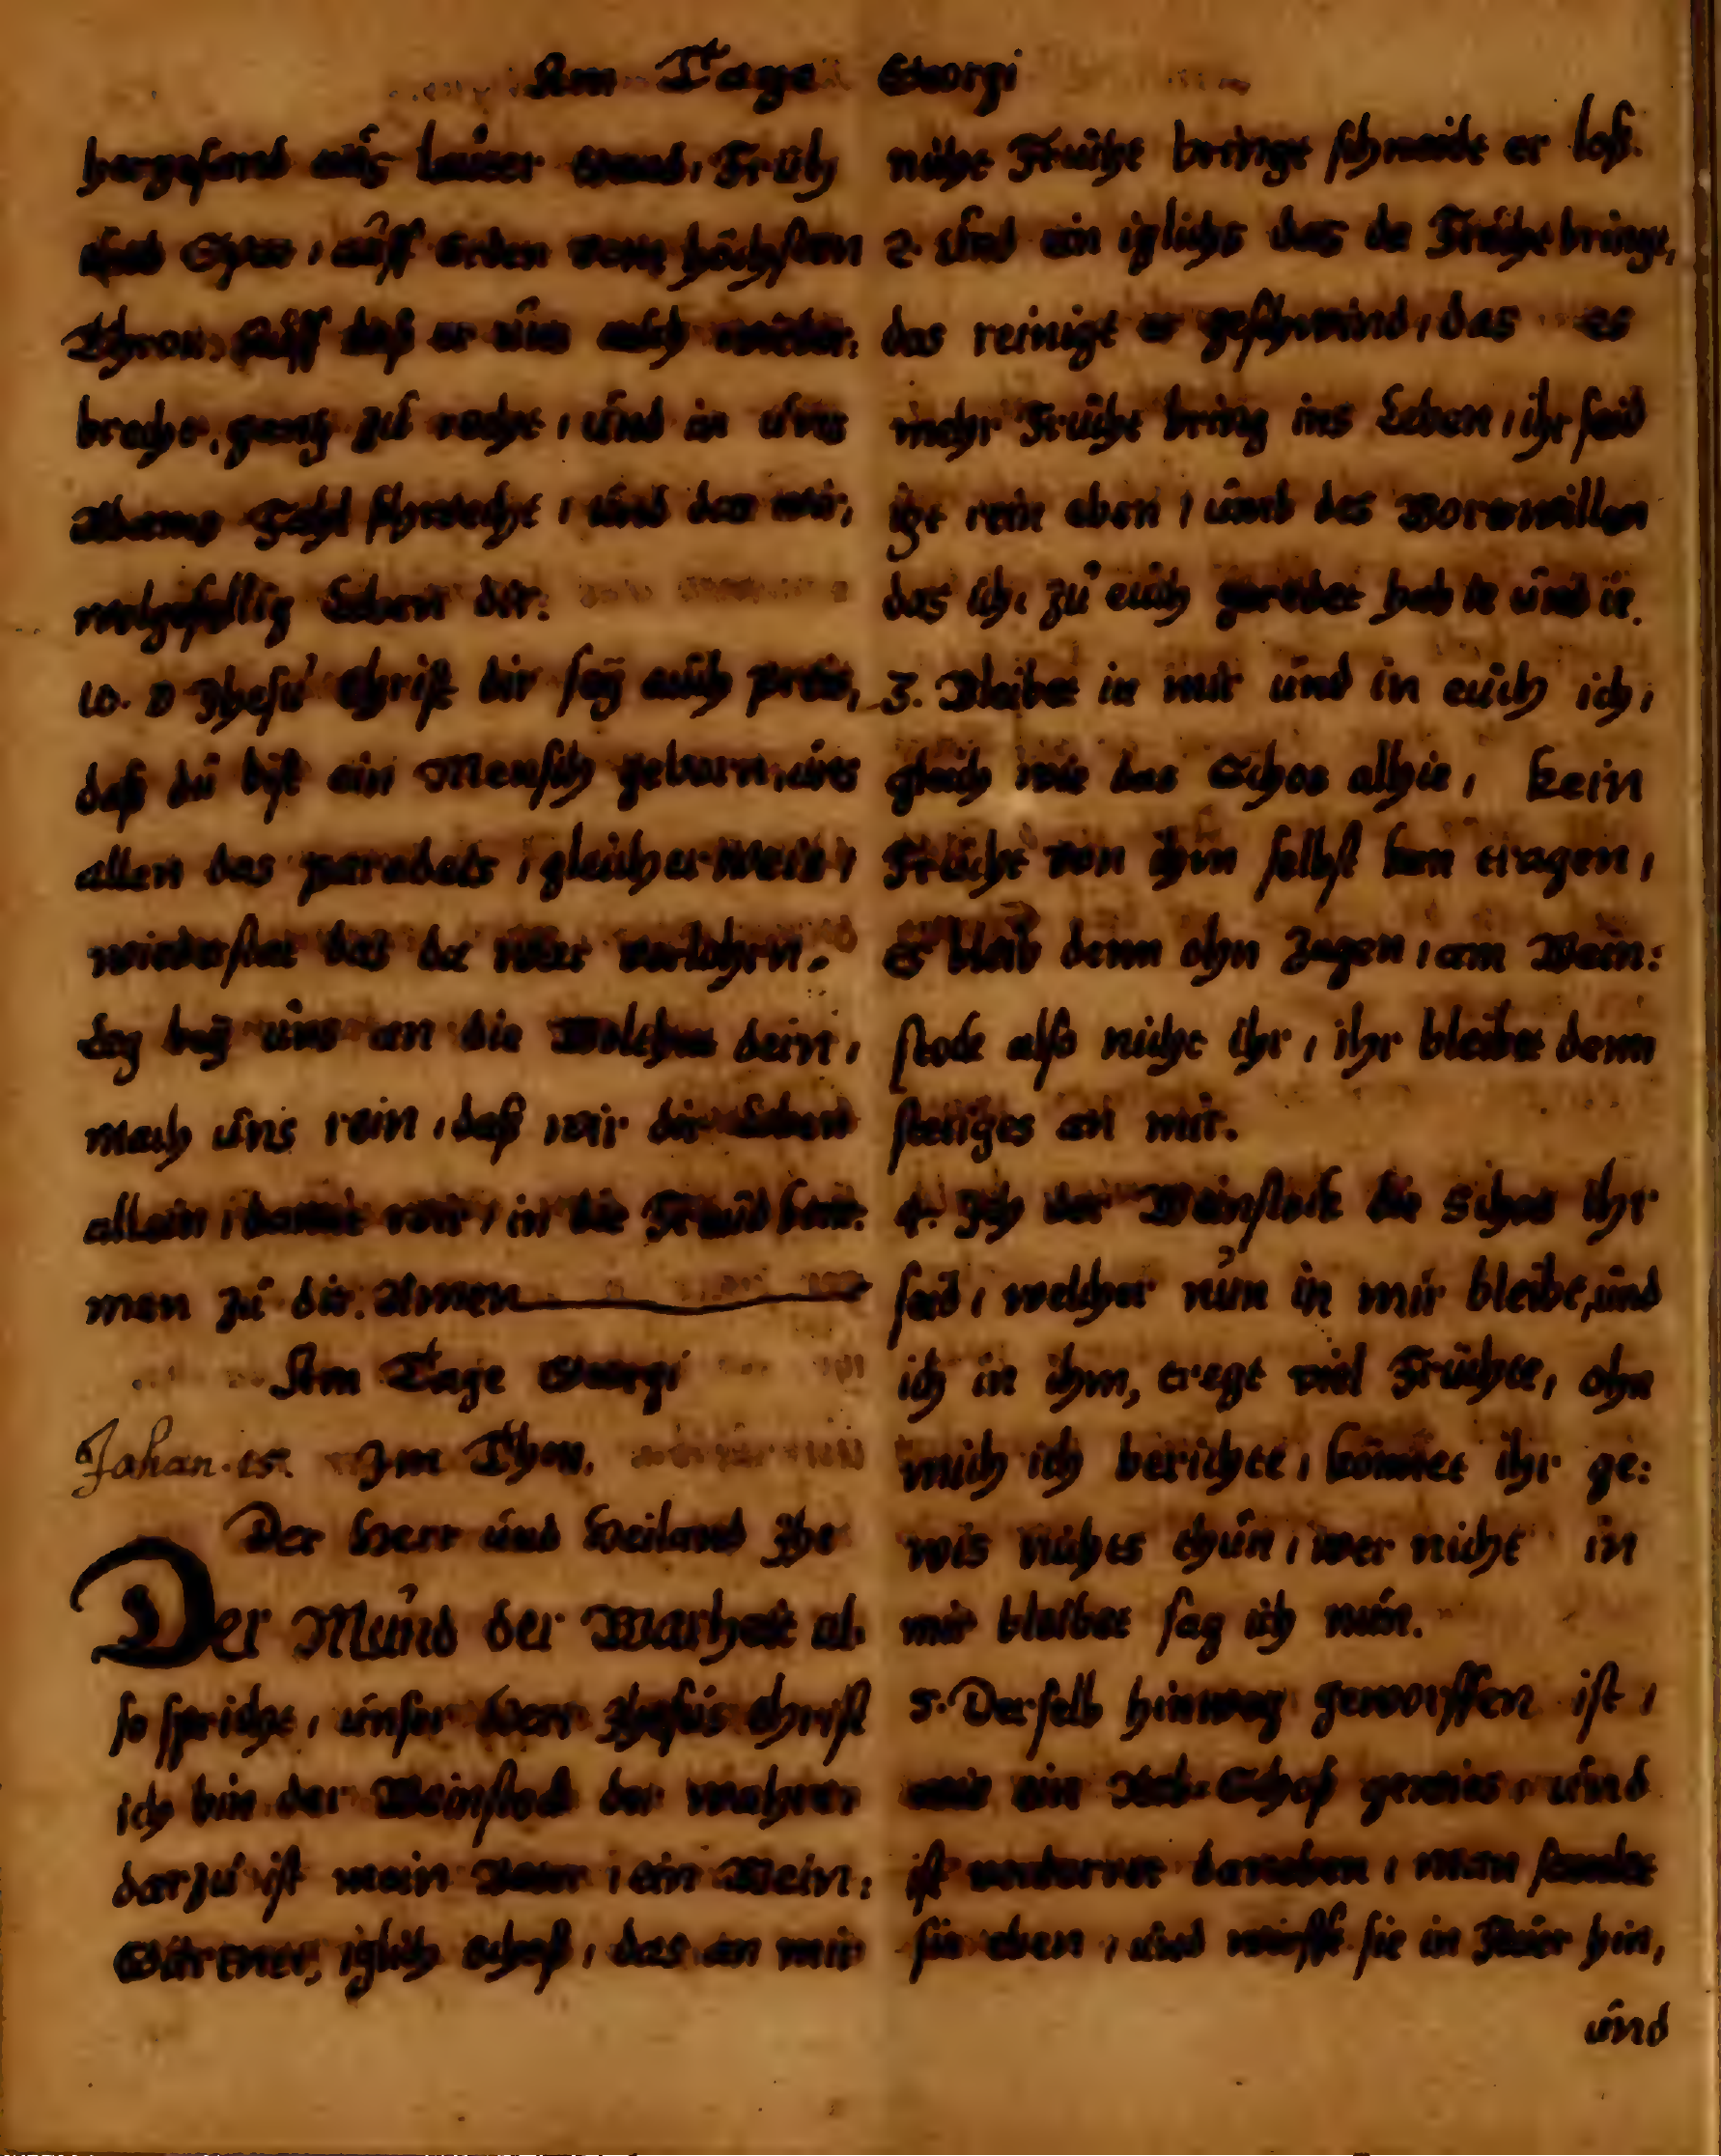 Am Tage Georgi
hergesand aus lauter Gnad, Früh
und Spat, auff Erden vom höchsten
Thron, Auff daß er uns auch wieder:
brecht, gantz zu recht, und in uns
Adams Fahl schwecht, und das wir,
wolgefellig Leben dir.
10. O Jhesu Christ dir seÿ auch preis,
daß du bist ein Mensch geborn, uns
allen das paradeis, gleicher weis,
wiederstat das da war verlohrn,
leg beÿ uns an die Wolthat dein,
mach uns rein, daß wir dir Leben
allein, damit wir, in die Freud kom:
men zu dir. Amen
Am Tage Georgi
Johan. 15. Im Thon.
Der Herr und Heiland Jhe
Der Mund der Warheit al:
so spricht, unser Herr Jhesus Christ
ich bin der Weinstock der wahrer
darzu ist mein Vater, ein Wein:
Gärtner, iglich schoß, das an mir
nicht Frücht bringt schneidt er loß.
2. Und ein iglichs das da Frücht bringt,
das reinigt er geschwind, das es
mehr Frücht bring ins Leben, ihr seid
itzt rein eben, umb des Wortswillen
das ich, zu euch geredet hab ie und ie.
3. Bleibet in mir und in euch ich,
gleich wie das Schos alhie, kein
Frücht von ihm selbst kan tragen,
Es bleib denn ohn Zagen, am Wein:
stock also nicht ihr, ihr bleibet denn
stetiges an mir.
4. Ich der Weinstock die Schos ihr
seid, welcher nun in mir bleibt, und
ich in ihm, tregt viel Früchte, ohn
mich ich berichte, könnet ihr ge:
wis nichts thun, wer nicht in
mir bleibet sag ich nun.
5. Derselb hinweg geworffen ist,
wie ein Reb-Schoß gewis, und
ist verdorret daneben, man samlet
sie eben, und wirfft sie in Feür hin,
und